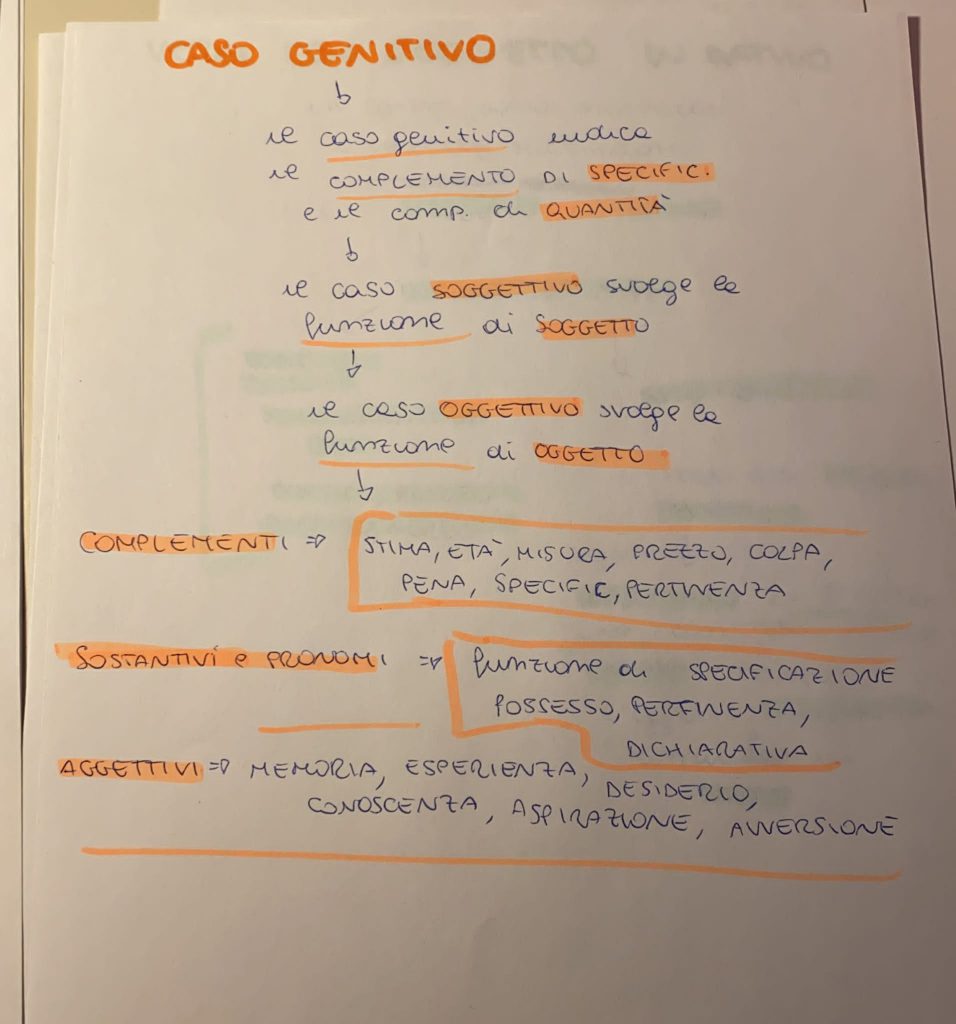 CASO GENITIVO
il caso genitivo indica
il COMPLEMENTO DI SPECIFIC.
e il comp. di QUANTITÀ
il caso SOGGETTIVO svolge la
funzione di SOGGETTO
il caso OGGETTIVO svolge la
funzione di OGGETTO
COMPLEMENTI => STIMA, ETÀ, MISURA, PREZZO, COLPA,
PENA, SPECIFIC, PERTINENZA
SOSTANTIVI e PRONOMI => funzione di SPECIFICAZIONE
POSSESSO, PERTINENZA,
DICHIARATIVA
AGGETTIVI => MEMORIA, ESPERIENZA, DESIDERIO,
CONOSCENZA, ASPIRAZIONE, AVVERSIONE